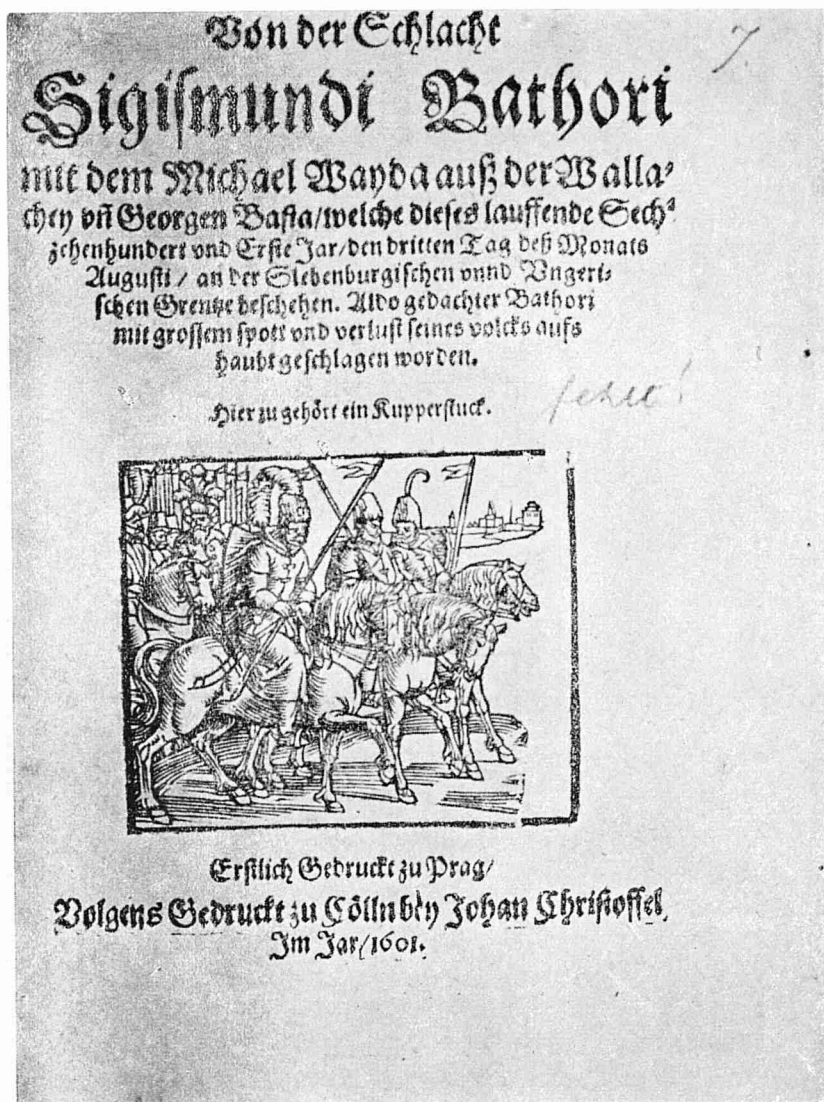 Von der Schlacht
7.
Sigismundi Bathori
mit dem Michael Wayda auß der Walla⸗
chey vñ Georgen Basta/welche dieses lauffende Sech⸗
zehenhundert vnd Erste Jar/den dritten Tag deß Monats
Augusti/ an der Siebenburgischen vnnd Vngeri⸗
schen Grentze beschehen. Aldo gedachter Bathori
mit grossem spott vnd verlust seines volcks aufs
haubt geschlagen worden.
Hier zu gehört ein Kupperstuck.
fehlt!
Erstlich Gedruckt zu Prag/
Volgens Gedruckt zu Cölln bey Johan Christoffel
Im Jar/1601.